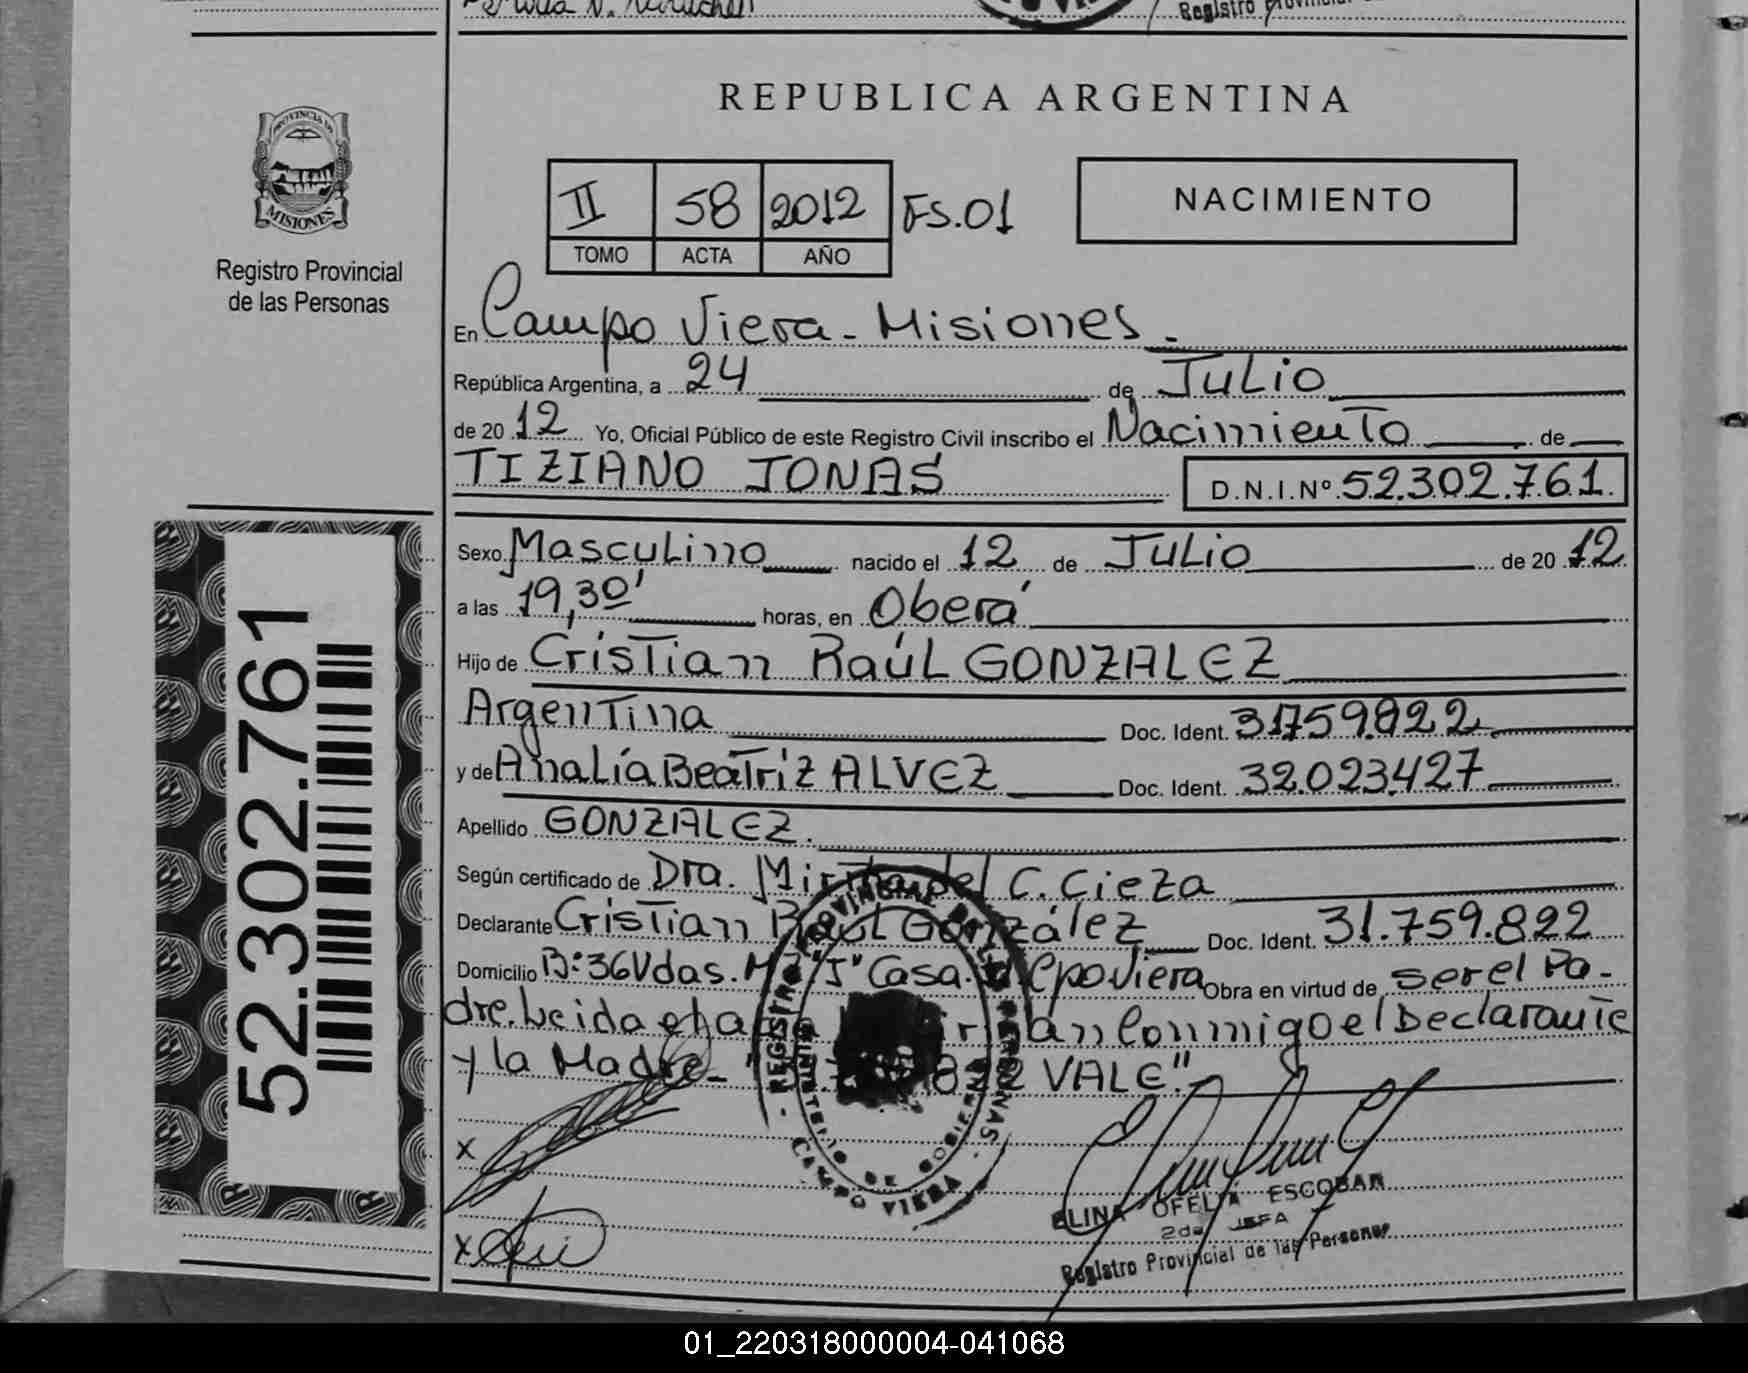 REPUBLICA ARGENTINA
PROVINCIA DE
MISIONES
Registro Provincial
de las Personas
II 58 2012 FS.01
TOMO ACTA AÑO
NACIMIENTO
En Campo Viera - Misiones.
República Argentina, a 24 de Julio
de 2012 Yo, Oficial Público de este Registro Civil inscribo el Nacimiento de
TIZIANO JONAS D.N.I.Nº 52.302.761.
Sexo Masculino nacido el 12 de Julio de 2012
a las 19,30' horas, en Oberá
Hijo de Cristian Raúl GONZALEZ
Argentina Doc. Ident. 31759.822
y de Analía Beatriz ALVEZ Doc. Ident. 32.023.427
Apellido GONZALEZ.
Según certificado de Dra. Mirta del C. Cieza
Declarante Cristian Raúl González Doc. Ident. 31.759.822
Domicilio Bº 36 Vdas. Mz "J" Casa Cpo Viera Obra en virtud de ser el Pa-
dre. Leida el acta conmigo el Declarante
y la Madre - VALE".
REGISTRO PROVINCIAL DE LAS PERSONAS
MINISTERIO DE GOBIERNO
- CAMPO VIERA -
x
x
ELINA OFELIA ESCOBAR
2da JEFA
Registro Provincial de las Personas
52.302.761
01_220318000004-041068